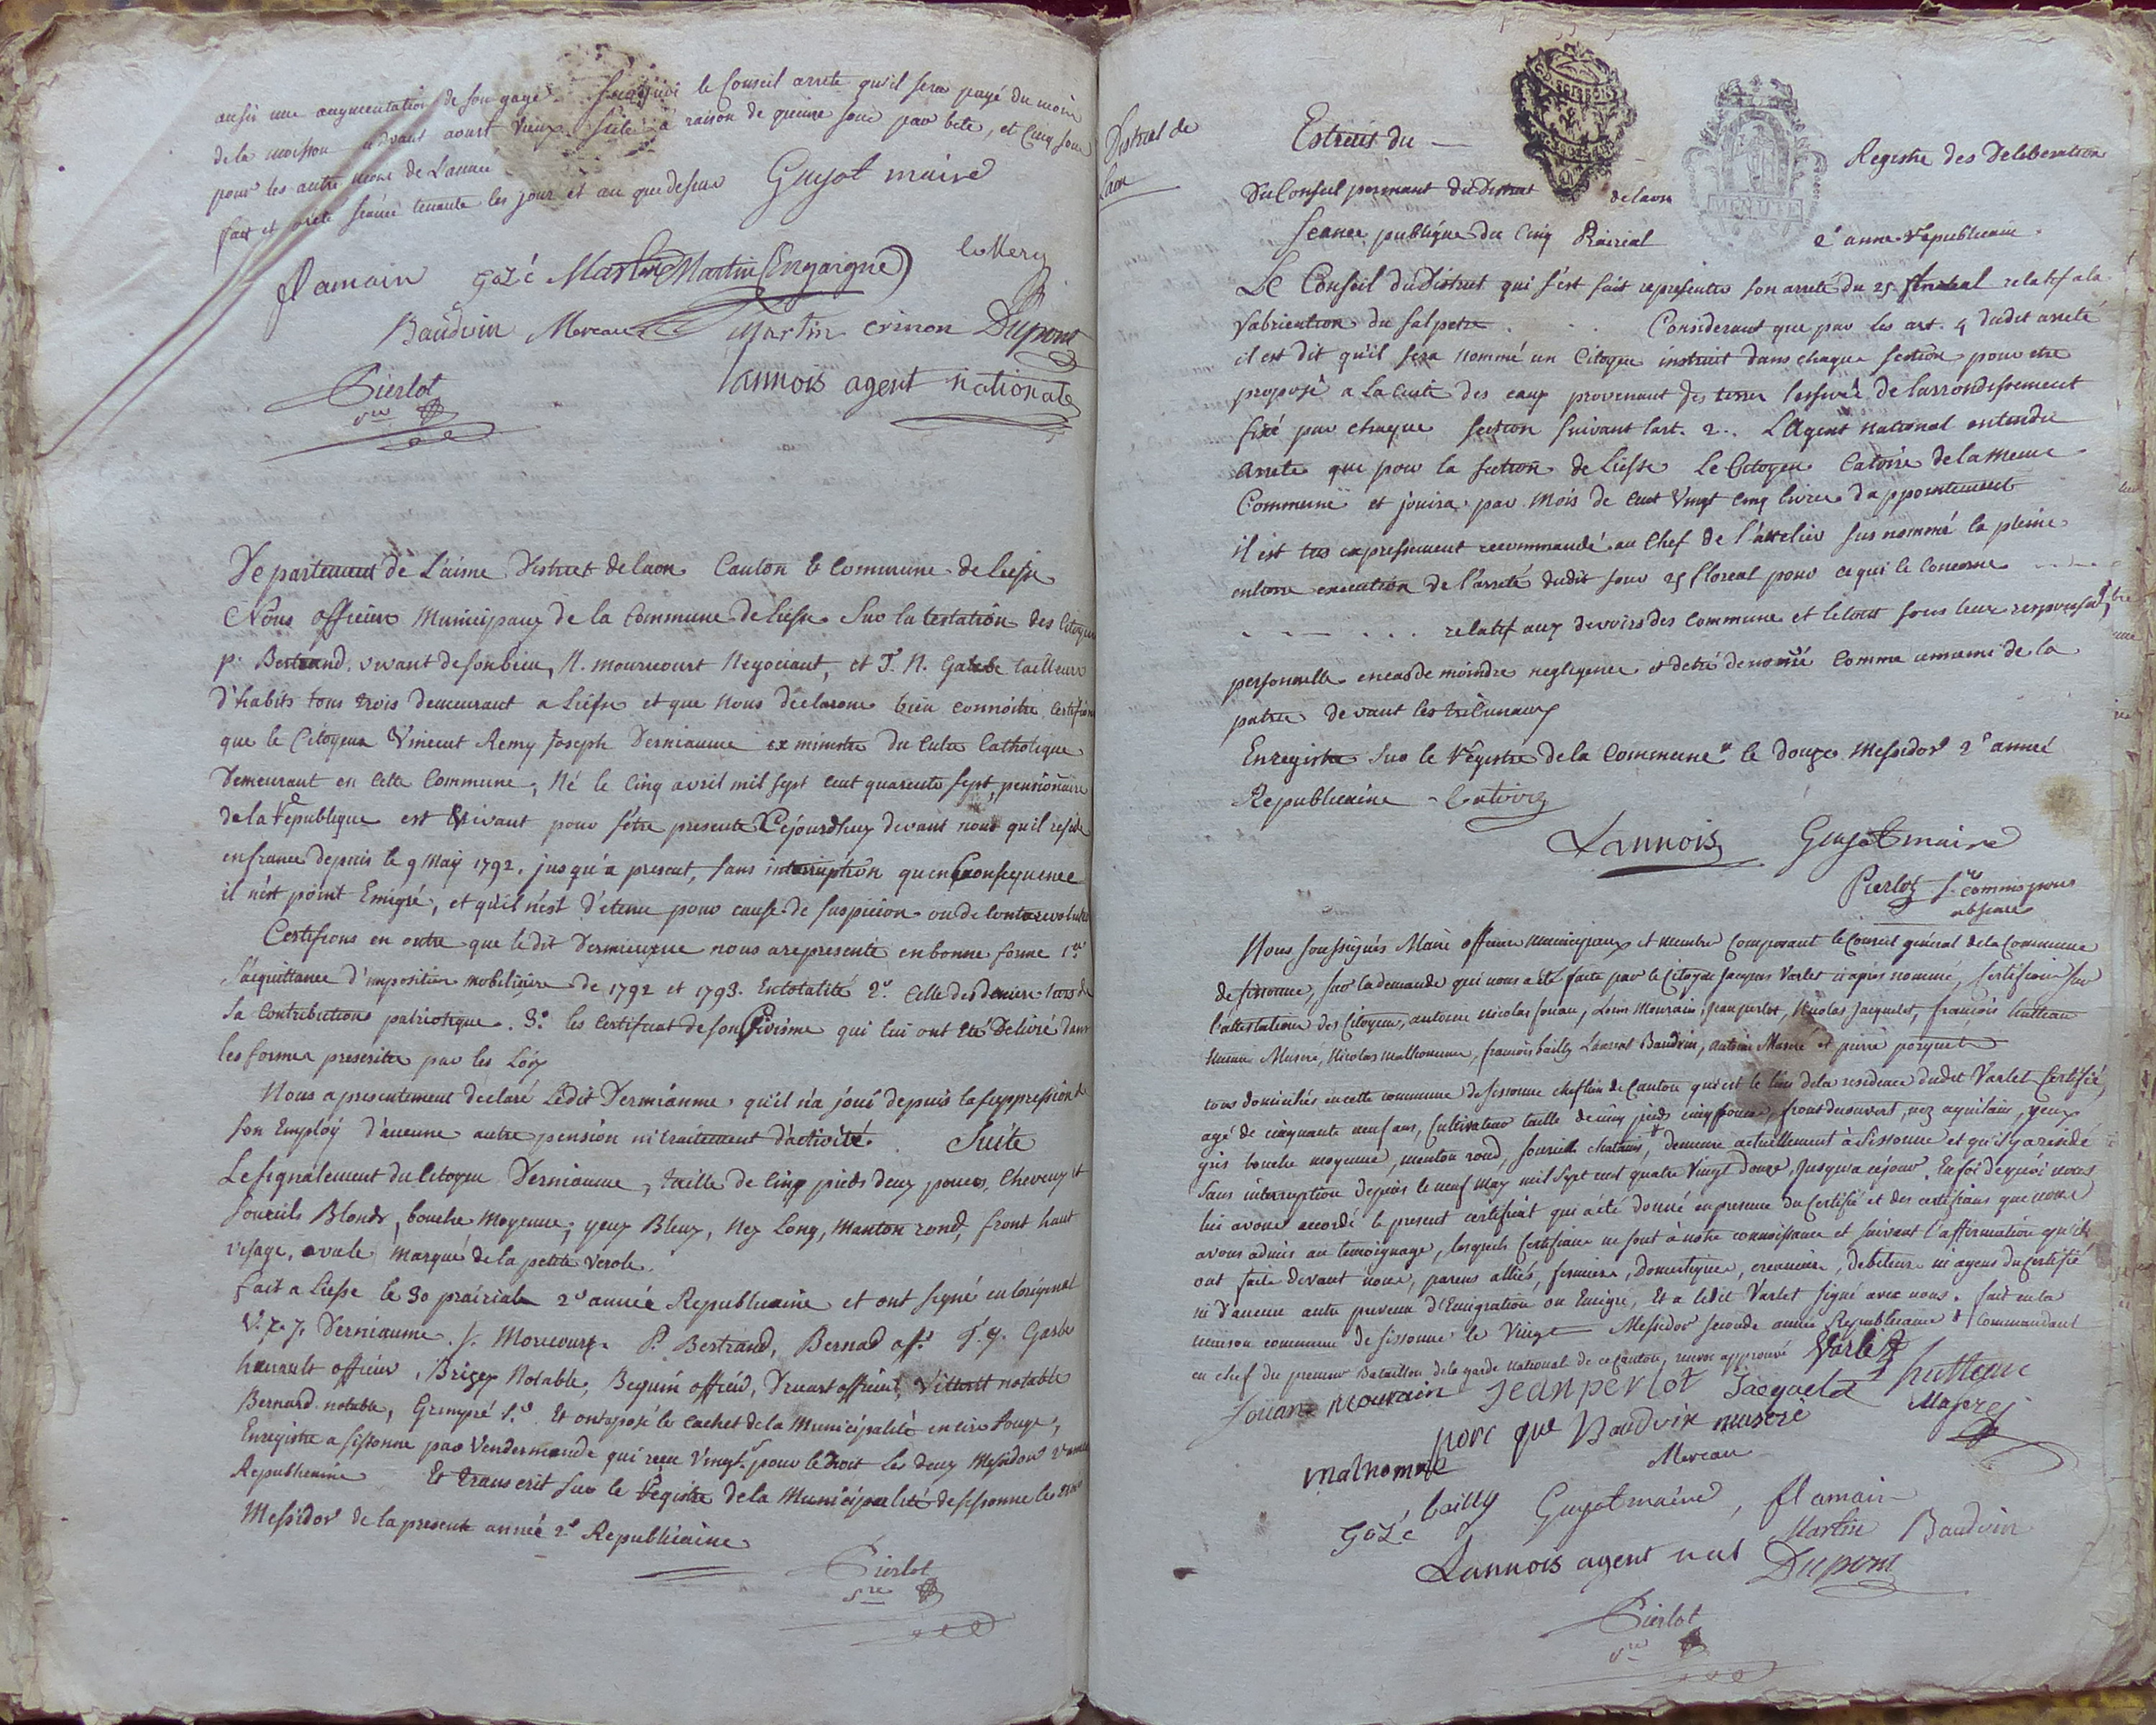 ausy une augmentation de son gage. Surquoi le Conseil arrete qu'il sera payé du mois
de la moisson a raison de quinze sous par bete, et Cinq sous
pour les autre mois de L'année
fait et areté seance tenante les jour et an que dessus Guyot maire
flamain Gozé Martin Martin (Engaigne) le Mery
Baudoin Moreau Martin crinon Dupont
Lannois agent national
Pierlot
sre
Departement de L'aisne District de laon Canton & Commune de Liesse
Nous officiers Municipaux de la Commune de Liesse Sur la testation des Citoyens
p. Bertrand, vivant de son bien, N. mourcourt Negociant, et T. N. Garbe tailleur
d'habits tous trois demeurant a Liesse et que nous declarons bien connoitre, Certifions
que le Citoyen Vincent Remy Joseph Derniaume ex ministre du Culte Catholique
Demeurant en Cette Commune, Né le Cinq avril mil sept cent quarente sept, pensionaire
de la Republique est Vivant pour s'étre presenté Cejourdhuy devant nous qu'il reside
en france depuis le 9 May 1792. jusqu'a present, sans interruption qu'en Consequence
il n'est point Emigré, et qu'il n'est d'étenu pour cause de suspicion ou de Contrerevolution
Certifions en outre que ledit Derniaume nous a representé en bonne forme 1.o
l'acquittance d'imposition mobiliaire de 1792 et 1793. En totalité 2.o Celle des deniers tiers de
Sa Contribution patriotique. 3.o les Certificat de son Civisme qui lui ont été Delivré dans
les formes prescrites par les Loix
Nous a presentement declaré Ledit Derniaume qu'il n'a joui depuis la suppression de
son Employ d'aucune autre pension ni traitement d'activité. Suite
Le signalement du Citoyen Derniaume, taille de Cinq pieds deux pouces, Cheveux et
Sourcils Blonds, bouche Moyenne, yeux Bleux, Nez Long, Manton rond, front haut
visage, ovale marqué de la petite verole.
fait a Liesse le 30 prairiale 2e année Republicaine et ont signé en L'original
V. R. J. Derniaume. N. Morcourt. P. Bertrand, Bernad off. T. N. Garbe
herault officier, Brizez Notable, Bequin officié, Druart officier, notable
Bernard notable, Grimpré S.re Et on aposé le Cachet de la Municipalité en cire Rouge,
Enregistré a sissonne par Vendermande qui recu Vingt s. pour le Droit Les deux Messidor 2 année
Republicaine Et transcrit sur le Registre de la Municipalité de sissonne les trois
Messidor de la presente année 2e Republicaine
Pierlot
sre
District de
laon
Extrait du Registre des Deliberations
Du Conseil permant du District de laon
Seance publique du Cinq Prairial 2e anne Republicain.
Le Conseil du District qui s'est fait representer son arreté du 25 floreal relatif a la
fabrication du salpetre . . Considerant que par les art. 4 dudit arreté
il est dit qu'il sera nommé un Citoyen instruit dans chaque section pour etre
proposé a La Cuite des eaux provenant des terres lessivée de larrondissement
fixé par chaque section suivant l'art. 2.. L'agent national entendu
Arrete que pour la section de Liesse Le Citoyen Catoire de la Meme
Commune et jouira par Mois de Cent Vingt Cinq livres d'appointement
il est tres expressement recommandé au Chef de l'attelier sus nommé la pleine
entiere execution de l'arreté dudit jour 25 floreal pour ce qui le Concerne
relatif aux devoirs des Commune et le tout sous leur responsabi
personnelle en cas de moindre negligence et detre denoncé Comme ennemi de la
patrie devant les tribunaux
Enregistré sur le Registre de la Commune le Douze Messidor 2e année
Republicaine Catoire
Lannois Guyot maire
Pierlot s.re commis pour
absence
Nous soussignés Maire officiers municipaux et membre Composant le Conseil général de la Commune
de sissonne, sur la demande qui nous a eté faite par le Citoyen Jacques Varlet ci après nommé, Certifions sur
l'attestation des Citoyens, antoine nicolas fouan, Louis Mourain, jean perlot, Nicolas Jacquelet, francois hutteau
Museré, Nicolas malhomme, francois bailly Laurent Baudvin, antoine Maseré et pierre porquet
tous domiciliés en cette commune de sissonne chef lieu de Canton qui est le lieu de la residence dudit Varlet Certifié
agé de cinquante neuf ans, Cultivateur taille de cinq pieds cinq pouces, front decouvert, nez aquilain, yeux
gris bouche moyenne, menton rond, sourcils chatains, demeure actuellement à Sissonne et qu'il y a residé
sans interruption depuis le neuf may mil sept cent quatre vingt douze, jusqu'a ce jour. En foi de quoi nous
lui avons accordé le present certificat qui a été donné en presence du Certifié et des certifians que nous
avons admis au temoignage, lesquels Certifians ne sont à notre connoissance et suivant l'affirmation qu'ils
ont faite devant nous, parens alliés, fermiers, Domestiques, creanciers, debiteurs ni agens du Certifié
ni d'aucune autre prevenu d'Emigration ou Emigré, Et a ledit Varlet signé avec nous. fait en la
maison commune de sissonne le Vingt Messidor seconde année Republicaine + Commandant
en chef du premier Bataillon de la garde national de ce Canton, renvoi approuvé Varlet
fouan mourain Jean perlot Jacquelet hutteau
porc que Baudvin museré Maseré
malhomme Moreau
Gozé bailly Guyot maire, flamain
Martin Baudvin
Lannois agent nat Dupont
Pierlot
sre